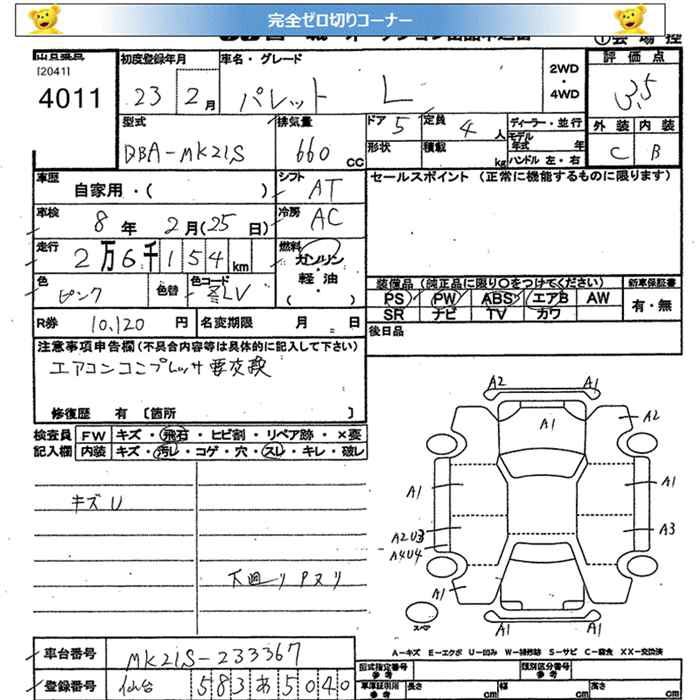 完全ゼロ切りコーナー
[2041]
4011
初度登録年月
23 2月
車名・グレード
パレット L
2WD
・
4WD
評価点
3.5
外装 内装
C B
型式
DBA-MK21S
排気量
660 CC
ドア 5
形状
定員 4 人
積載 kg
ディーラー・並行
モデル年式 年
ハンドル 左・右
車歴
自家用・( )
シフト AT
セールスポイント (正常に機能するものに限ります)
車検
8年 2月(25日)
冷房 AC
走行
2万6千154km
燃料
ガソリン
・
軽油
( )
色
ピンク
色替
色コード
ZLV
装備品 (純正品に限り○をつけてください)
PS PW ABS エアB AW
SR ナビ TV カワ
新車保証書
有・無
R券 10,120 円
名変期限 月 日
後日品
注意事項申告欄(不具合内容等は具体的に記入して下さい)
エアコンコンプレッサ要交換
修復歴 有 [箇所 ]
検査員
記入欄
FW キズ・飛石・ヒビ割・リペア跡・×要
内装 キズ・汚レ・コゲ・穴・スレ・キレ・破レ
キズU
下廻りPヌリ
A2 A1
A1 A2
A1 A1
A2U3 A3
A4U4
A1
A1 A1
スペア
A-キズ E-エクボ U-凹み W-補修跡 S-サビ C-腐食 XX-交換済
車台番号 MK21S-233367
登録番号 仙台 583 あ 5040
型式指定番号
参考
類別区分番号
参考
車庫証明用
参考
長さ cm
幅 cm
高さ cm